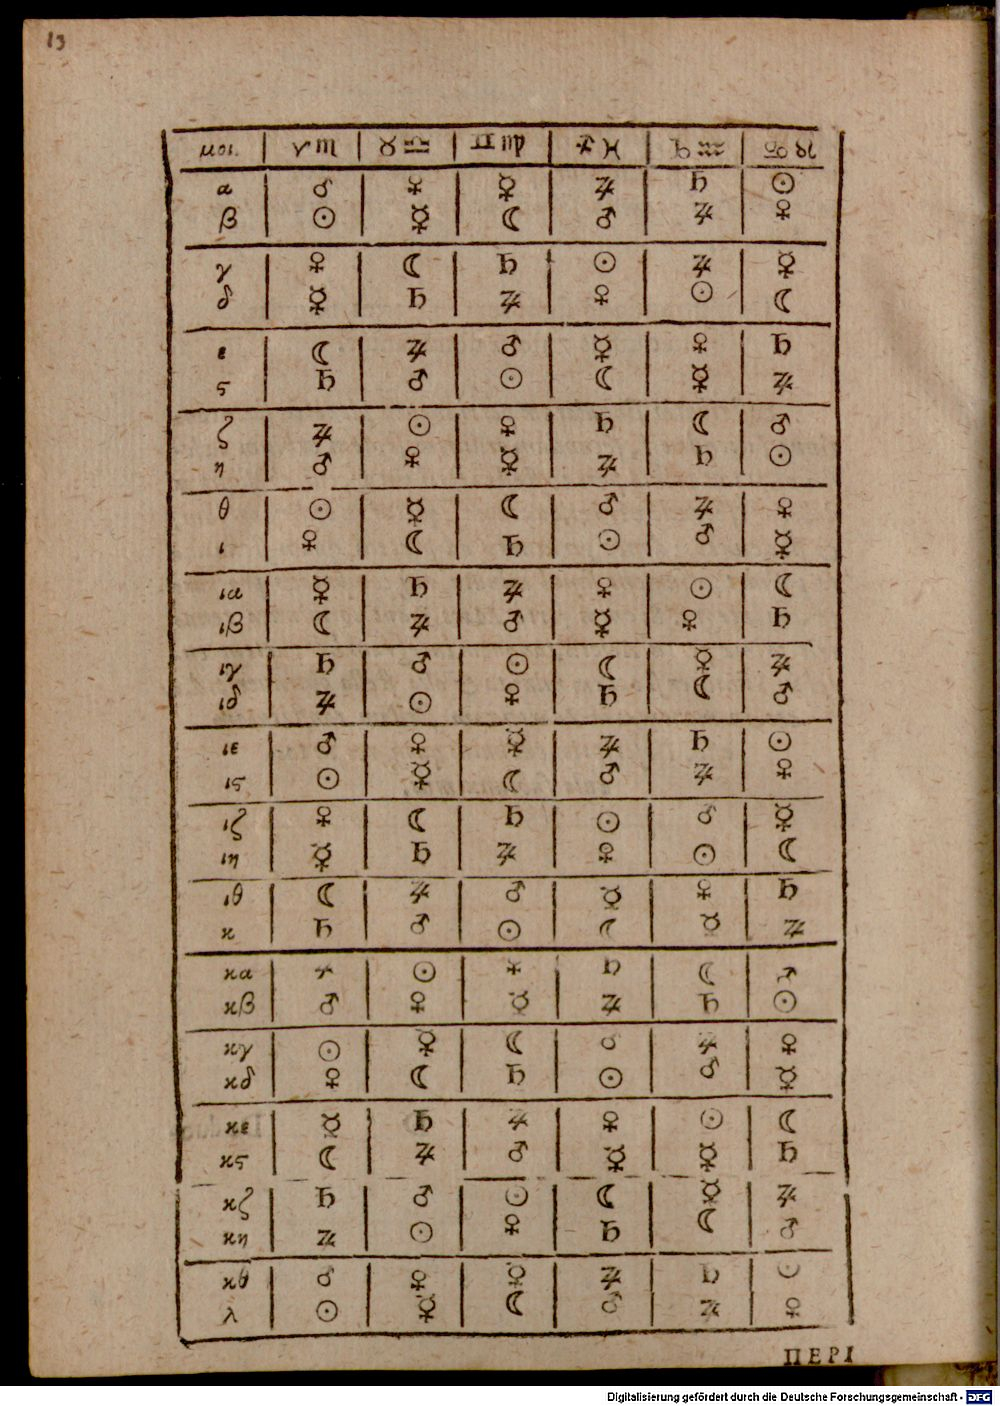 13
μοι. ♈♏ ♉♎ ♊♍ ♐♓ ♑♒ ♋♌
α ♂ ♀ ☿ ♃ ♄ ☉
β ☉ ☿ ☾ ♂ ♃ ♀
γ ♀ ☾ ♄ ☉ ♃ ☿
δ ☿ ♄ ♃ ♀ ☉ ☾
ε ☾ ♃ ♂ ☿ ♀ ♄
ς ♄ ♂ ☉ ☾ ☿ ♃
ζ ♃ ☉ ♀ ♄ ☾ ♂
η ♂ ♀ ☿ ♃ ♄ ☉
θ ☉ ☿ ☾ ♂ ♃ ♀
ι ♀ ☾ ♄ ☉ ♂ ☿
ια ☿ ♄ ♃ ♀ ☉ ☾
ιβ ☾ ♃ ♂ ☿ ♀ ♄
ιγ ♄ ♂ ☉ ☾ ☿ ♃
ιδ ♃ ☉ ♀ ♄ ☾ ♂
ιε ♂ ♀ ☿ ♃ ♄ ☉
ις ☉ ☿ ☾ ♂ ♃ ♀
ιζ ♀ ☾ ♄ ☉ ♂ ☿
ιη ☿ ♄ ♃ ♀ ☉ ☾
ιθ ☾ ♃ ♂ ☿ ♀ ♄
κ ♄ ♂ ☉ ☾ ☿ ♃
κα ♃ ☉ ♀ ♄ ☾ ♂
κβ ♂ ♀ ☿ ♃ ♄ ☉
κγ ☉ ☿ ☾ ♂ ♃ ♀
κδ ♀ ☾ ♄ ☉ ♂ ☿
κε ☿ ♄ ♃ ♀ ☉ ☾
κς ☾ ♃ ♂ ☿ ☿ ♄
κζ ♄ ♂ ☉ ☾ ☿ ♃
κη ♃ ☉ ♀ ♄ ☾ ♂
κθ ♂ ♀ ☿ ♃ ♄ ☉
λ ☉ ☿ ☾ ♂ ♃ ♀
ΠΕΡΙ
Digitalisierung gefördert durch die Deutsche Forschungsgemeinschaft - DFG